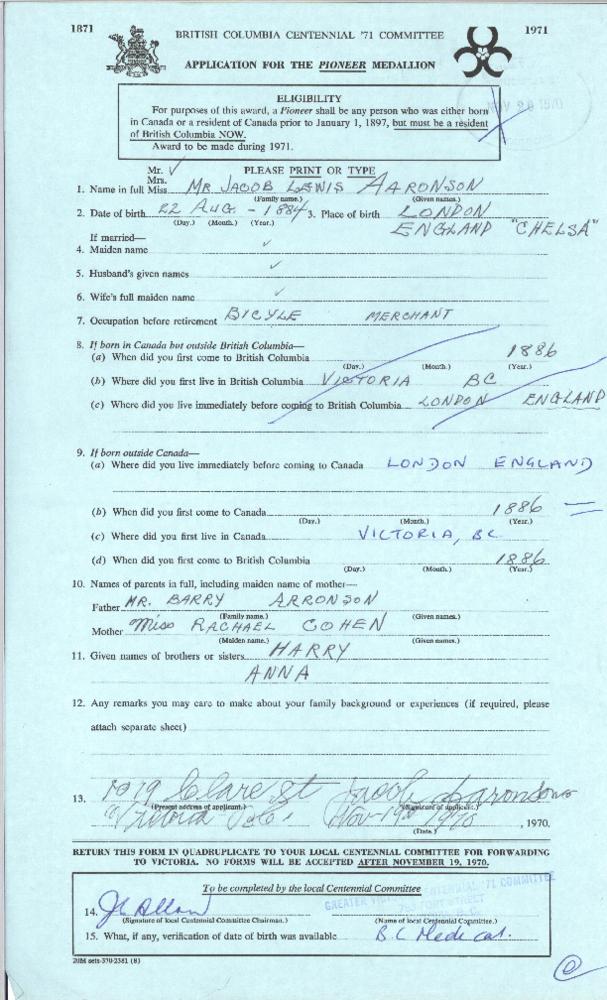 1871
BRITISH COLUMBIA CENTENNIAL '71 COMMITTEE
1971
APPLICATION FOR THE PIONEER MEDALLION
NOV 1970
ELIGIBILITY
For purposes of this award, a Pioneer shall be any person who was either born
in Canada or a resident of Canada prior to January 1, 1897, but must be a resident
of British Columbia NOW.
Award to be made during 1971.
Mr. ✓ PLEASE PRINT OR TYPE
Mrs.
1. Name in full Miss MR JACOB LEWIS AARONSON
(Family name.) (Given names.)
2. Date of birth 22 AUG - 1884 3. Place of birth LONDON
(Day.) (Month.) (Year.) ENGLAND "CHELSA"
If married—
4. Maiden name ✓
5. Husband's given names ✓
6. Wife's full maiden name ✓
7. Occupation before retirement BICYLE MERCHANT
8. If born in Canada but outside British Columbia—
(a) When did you first come to British Columbia 1886
(Day.) (Month.) (Year.)
(b) Where did you first live in British Columbia VICTORIA BC
(c) Where did you live immediately before coming to British Columbia LONDON ENGLAND
9. If born outside Canada—
(a) Where did you live immediately before coming to Canada LONDON ENGLAND
(b) When did you first come to Canada 1886
(Day.) (Month.) (Year.)
(c) Where did you first live in Canada VICTORIA, BC
(d) When did you first come to British Columbia 1886
(Day.) (Month.) (Year.)
10. Names of parents in full, including maiden name of mother—
Father MR. BARRY ARRONSON
(Family name.) (Given names.)
Mother Miss RACHAEL COHEN
(Maiden name.) (Given names.)
11. Given names of brothers or sisters HARRY
ANNA
12. Any remarks you may care to make about your family background or experiences (if required, please
attach separate sheet)
13. 1079 Clare St Jacob Aaronson
(Present address of applicant.) (Signature of applicant.)
Victoria Nov 19 1970, 1970.
(Date.)
RETURN THIS FORM IN QUADRUPLICATE TO YOUR LOCAL CENTENNIAL COMMITTEE FOR FORWARDING
TO VICTORIA. NO FORMS WILL BE ACCEPTED AFTER NOVEMBER 19, 1970.
To be completed by the local Centennial Committee
GREATER VICTORIA CENTENNIAL '71 COMMITTEE
14.
(Signature of local Centennial Committee Chairman.) (Name of local Centennial Committee.)
15. What, if any, verification of date of birth was available B.C Medical.
20M sets-370-2381 (8)